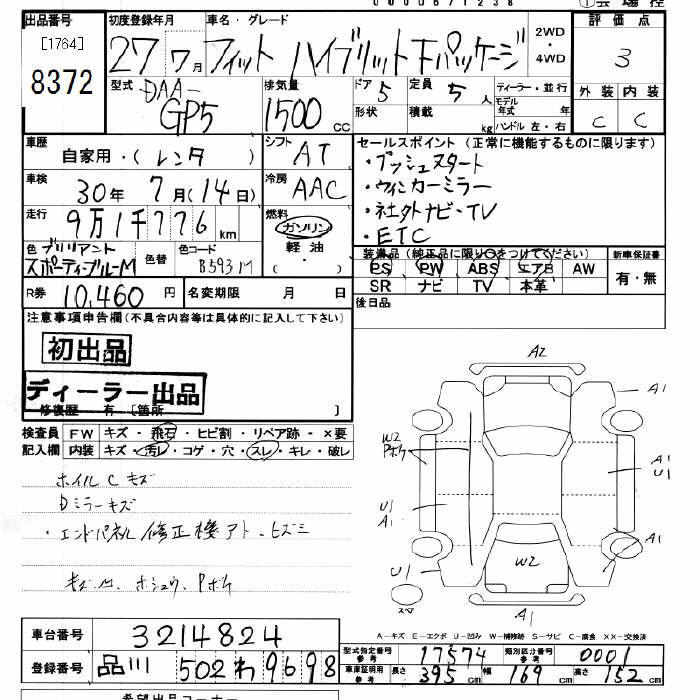 出品番号
[1764]
8372
初度登録年月
27 7月
車名・グレード
フィット ハイブリット Fパッケージ
2WD
・
4WD
評価点
3
外装 内装
C C
型式
DAA-
GP5
排気量
1500 cc
ドア
5
形状
定員
5 人
積載 kg
ディーラー・並行
モデル年式 年
ハンドル 左・右
車歴
自家用・(レンタ)
シフト
AT
車検
30年 7月(14日)
冷房
AAC
走行
9万1千776 km
燃料
ガソリン
軽油
( ・ )
色 ブリリアント
スポーティブルーM
色替
色コード
B593M
R券 10,460 円
名変期限 月 日
セールスポイント(正常に機能するものに限ります)
・プッシュスタート
・ウィンカーミラー
・社外ナビ・TV
・ETC
装備品(純正品に限り○をつけてください)
PS PW ABS エアB AW
SR ナビ TV 本革
新車保証書
有・無
後日品
注意事項申告欄(不具合内容等は具体的に記入して下さい)
初出品
ディーラー出品
修復歴 有 [箇所 ]
検査員 FW キズ・飛石・ヒビ割・リペア跡・×要
記入欄 内装 キズ・汚レ・コゲ・穴・スレ・キレ・破レ
ホイルCキズ
Dミラーキズ
・エンドパネル修正機アト、ヒズミ
A2
A1
W2
Pボケ
A1
U1
U1
A1
A1
U1
W2
スペア
A1
A-キズ E-エクボ U-凹み W-補修跡 S-サビ C-腐食 XX-交換済
車台番号 3214824
登録番号 品川 502 わ 9698
型式指定番号
参考
17574
類別区分番号
参考
0001
車庫証明用
参考
長さ 395 cm 幅 169 cm 高さ 152 cm
希望出品コーナー